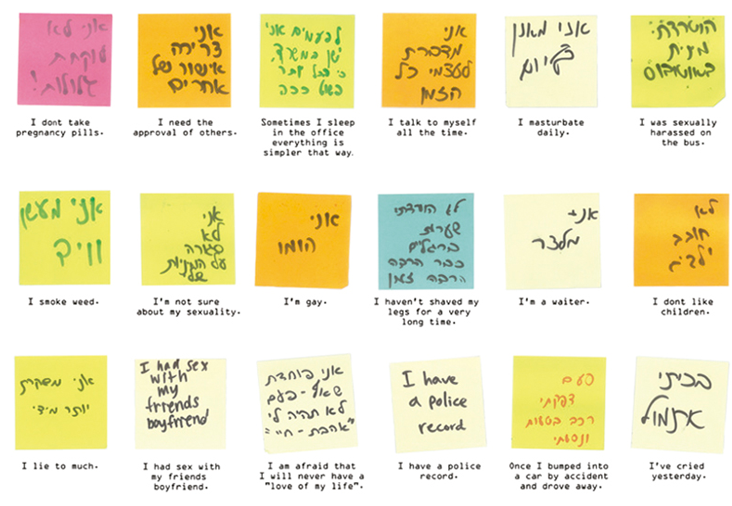 אני לא
לוקחת
גלולות!
I dont take
pregnancy pills.
אני
צריכה
אישור של
אחרים
I need the
approval of others.
לפעמים אני
ישן במשרד.
כי הכל יותר
פשוט ככה
Sometimes I sleep
in the office
everything is
simpler that way.
אני
מדברת
לעצמי כל
הזמן
I talk to myself
all the time.
אני מאונן
כל יום
I masturbate
daily.
הוטרדתי
מינית
באוטובוס
I was sexually
harassed on
the bus.
אני מעשן
וויד
I smoke weed.
אני
לא
סגורה
על המיניות
שלי
I'm not sure
about my sexuality.
אני
הומו
I'm gay.
לא הורדתי
שערות
ברגליים
כבר הרבה
הרבה זמן
I haven't shaved my
legs for a very
long time.
אני
מלצר
I'm a waiter.
לא
חובב
ילדים
I dont like
children.
אני משקרת
יותר מידי
I lie to much.
I had sex
with
my
friends
boyfriend
I had sex with
my friends
boyfriend.
אני פוחדת
שאף-פעם
לא תהיה לי
"אהבת-חיי"
I am afraid that
I will never have a
"love of my life".
I have
a police
record
I have a police
record.
פעם
דפקתי
רכב בטעות
ונסעתי
Once I bumped into
a car by accident
and drove away.
בכיתי
אתמול
I've cried
yesterday.